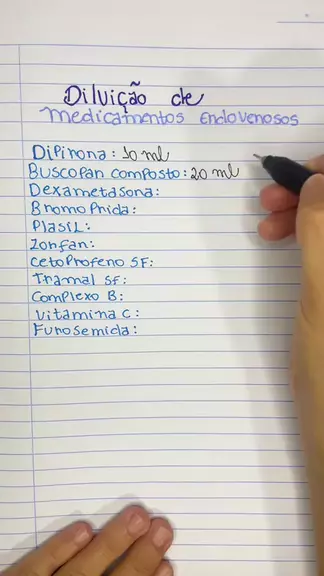 Diluição de
Medicamentos Endovenosos
Dipirona: 10 ml
Buscopan composto: 20 ml
Dexametasona:
Bromoprida:
Plasil:
Zonfan:
Cetoprofeno SF:
Tramal SF:
Complexo B:
Vitamina C:
Furosemida: